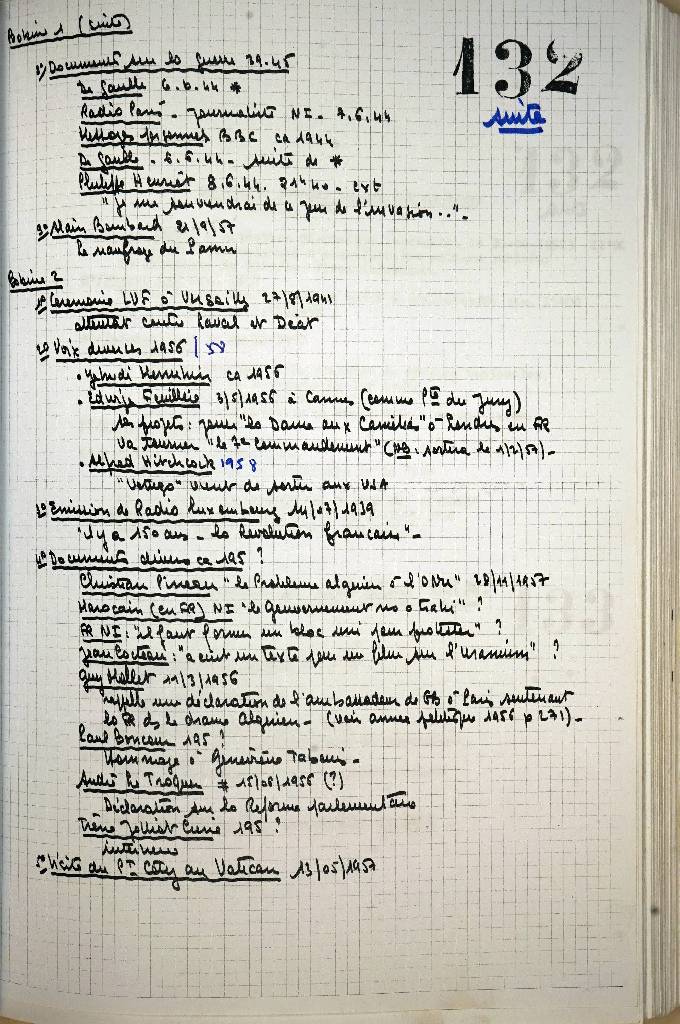 Bobine 1 (suite)
132
suite
1°/ Documents sur la guerre 39.45
De Gaulle 6.6.44 *
Radio Paris - journaliste NI - 7.6.44
Messages personnels BBC ca 1944
De Gaulle - 6.6.44 - suite de *
Philippe Henriot 8.6.44. 21h40 - ext
"Je me souviendrai de ce jour de l'invasion..." -
2° Alain Bombard 21/9/57
Le naufrage du
Bobine 2
1° Cérémonie LVF à Versailles 27/8/1941
attentat contre Laval et Déat
2° Voix diverses 1956 / 58
• Yehudi Menuhin ca 1956
• Edwige Feuillère 3/5/1956 à Cannes (comme Pte du Jury)
ses projets : jouer "la Dame aux Camélias" à Londres en FR
va tourner "le 7e commandement" (NB : sortira le 1/2/57) -
• Alfred Hitchcock 1958
"Vertigo" vient de sortir aux USA
3° Emission de Radio Luxembourg 14/07/1939
"il y a 150 ans - la Révolution française" -
4° Documents divers ca 195 ?
Christian Pineau "le Problème algérien à l'ONU" 28/11/1957
Marocain (en FR) NI "le Gouvernement nous a trahi" ?
FR NI : "il faut former un bloc uni pour protester" ?
Jean Cocteau : "a écrit un texte pour un film sur l'uranium" ?
Guy Mollet 11/3/1956
rappelle une déclaration de l'ambassadeur de GB à Paris soutenant
la FR ds le drame Algérien - (voir année politique 1956 p 271) -
Paul Boncour 195 ?
Hommage à Geneviève Tabouis -
André Le Troquer # 15/05/1956 (?)
Déclaration sur la Réforme parlementaire
Irène Jolliot Curie 195 ?
interview
5° Visite du Pt Coty au Vatican 13/05/1957